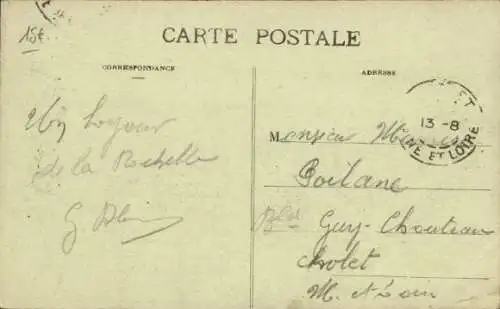 15€
CARTE POSTALE
CORRESPONDANCE
ADRESSE
de la Rochelle
G.
ET
13-8
NE ET LOIRE
Monsieur
Poilane
Bld Guy-Chouteau
Cholet
M. et Loire